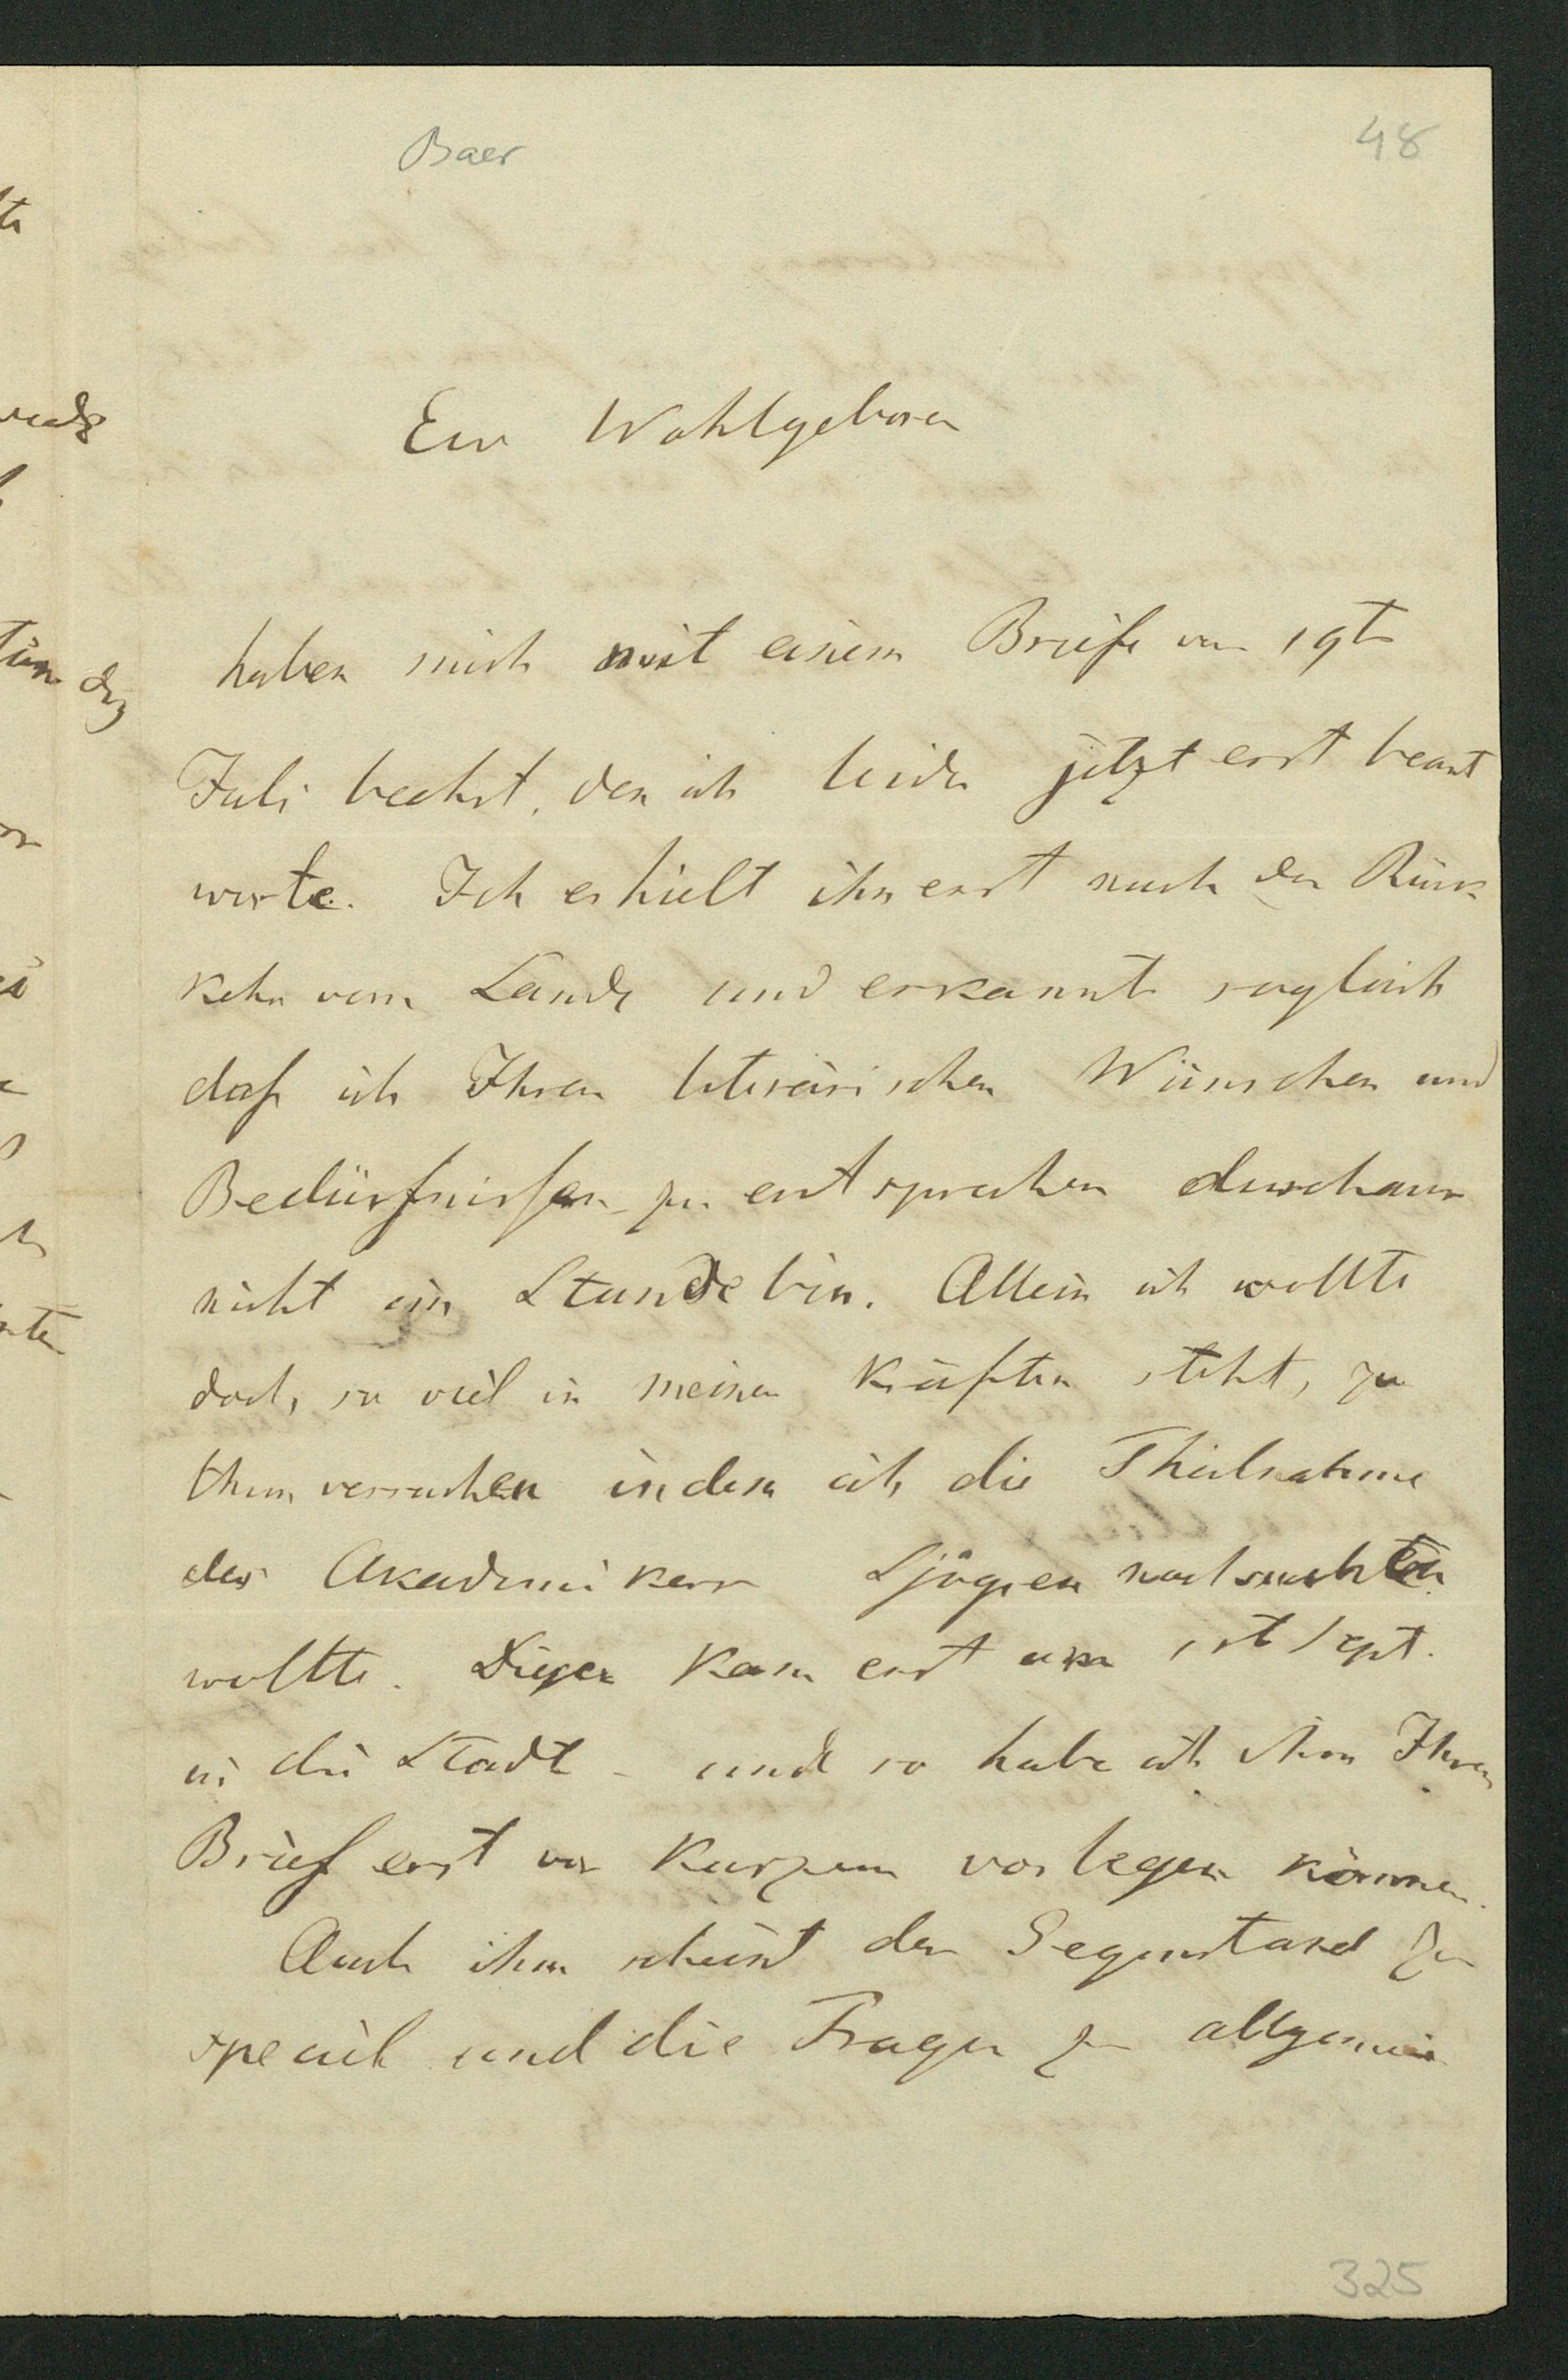 Baer
48
Ew Wohlgeboren
haben mich mit einem Briefe vom 19t
Juli beehrt, den ich leider jetzt erst beant
worte. Ich erhielt ihn erst nach der Rück
kehr vom Lande und erkannte sogleich
daß ich Ihren literärischen Wünschen und
Bedürfnissen zu entsprechen durchaus
nicht im Stande bin. Allein ich wollte
doch, so viel in meinen Kräften steht, zu
thun versuchen indem ich die Theilnahme
des Akademikers Sjögren nachsuchen
wollte. Dieser kam erst am 1st Sept.
in die Stadt – und so habe ich ihm Ihren
Brief erst vor Kurzem vorlegen können.
Auch ihm scheint der Gegenstand zu
speciel und die Fragen zu allgemein
325